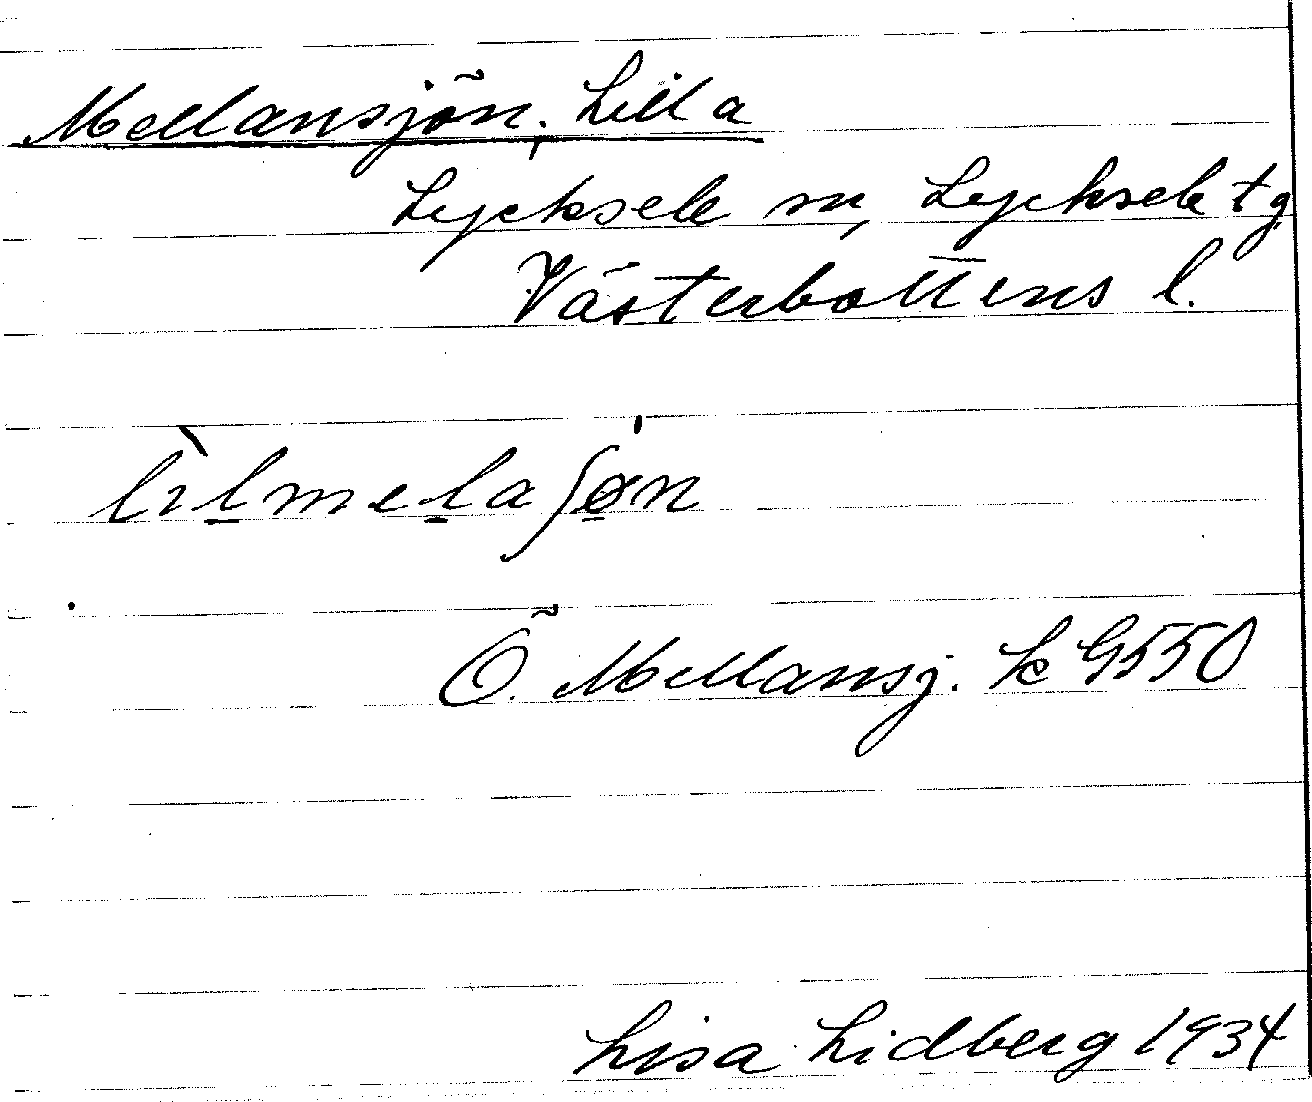 Mellansjön, Lilla
Lycksele sn, Lycksele tg
Västerbottens l.
lìlmelaʃøn
Ö. Mellansj. k G550
Lisa Lidberg 1934